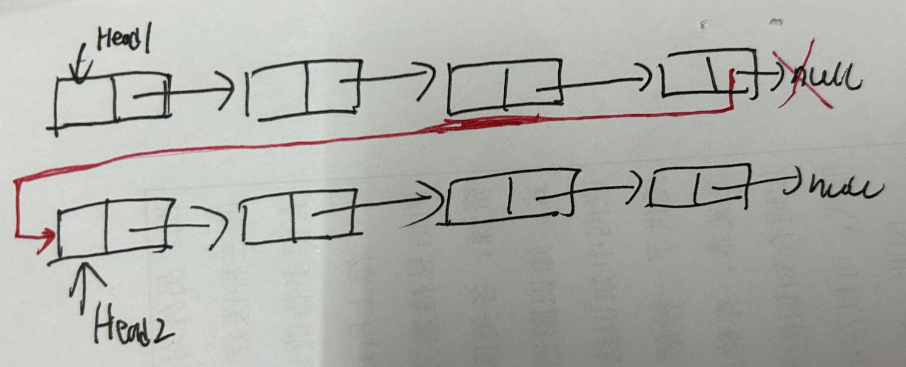 Head1
null
null
Head2